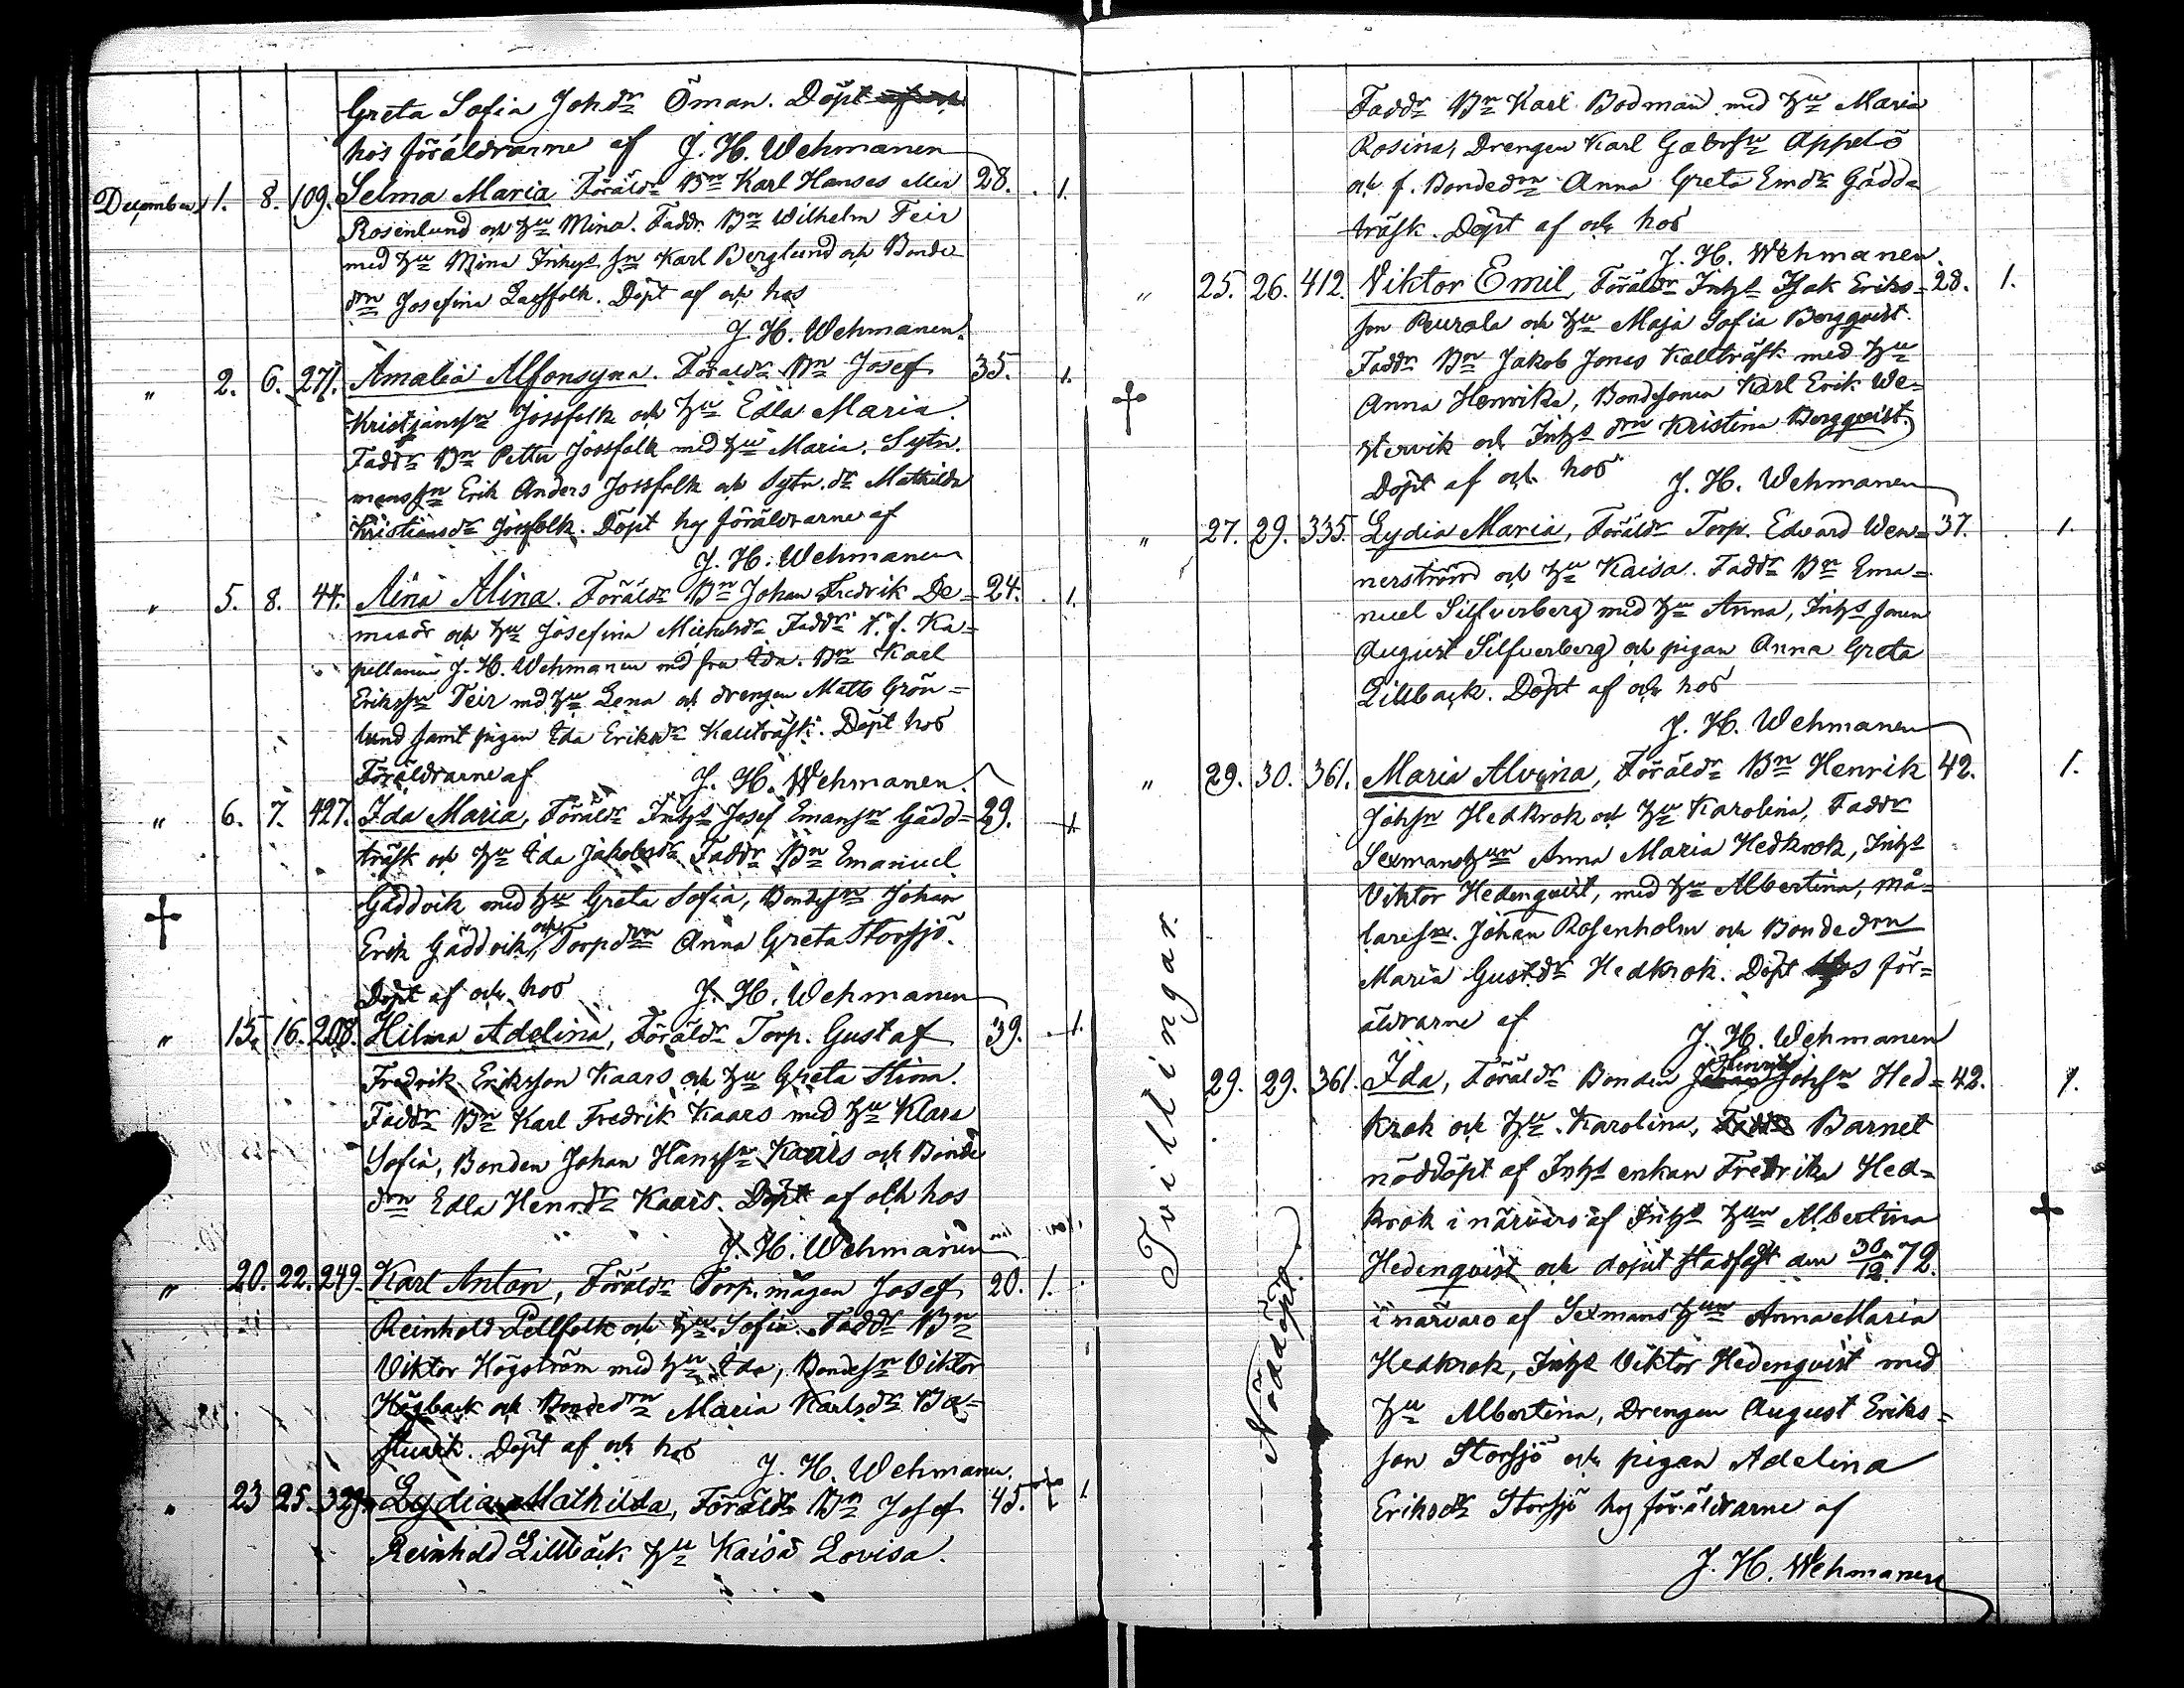 Greta Sofia Johdr Öman. Döpt
hos föräldrarne af J. H. Wehmanen
December 1. 8. 109. Selma Maria Föräldr Bn Karl Hansas eller 28. 1.
Rosenlund och hu Mina. Faddr. Bn Wilhelm Teir
med hu Mina Inhys sn Karl Berglund och Bonde
drn Josefina Lassfolk. Döpt af och hos
J. H. Wehmanen.
" 2. 6. 271. Amalia Alfonsyna. Föräldr Bn Josef 35. 1.
Kristjanssn Jossfolk och hu Edla Maria.
Faddr Bn Petter Jossfolk med hu Maria. Sytn.
mans sn Erik Anders Jossfolk och Sytn. dr Mathilda
Kristiansdr Jossfolk. Döpt hos föräldrarne af
J. H. Wehmanen
" 5. 8. 44. Aina Alina. Föräldr Bn Johan Fredrik De= 24. 1.
masör och hu Josefina Michelsdr Faddr t. f. Ka=
pellanen J. H. Wehmanen med fru Ida. Bn Karl
Erikssn Teir med hu Lena och drengen Matts Grön=
lund samt pigan Ida Eriksdr Kallträsk. Döpt hos
Föräldrarne af J. H. Wehmanen.
" 6. 7. 427. Ida Maria, Föräldr Inhs Josef Emanssn Gädd= 29. 1.
träsk och hu Ida Jakobsdr Faddr Bn Emanuel
Gäddvik med hu Greta Sofia, Bondesn Johan
Erik Gäddvik, och Torpdrn Anna Greta Storsjö.
Döpt af och hos J. H. Wehmanen
" 15. 16. 208. Hilma Adelina, Föräldr Torp. Gustaf 39. 1.
Fredrik Eriksson Kaars och hu Greta Stina.
Faddr Bn Karl Fredrik Kaars med hu Klara
Sofia, Bonden Johan Hanssn Kaars och Bonde
drn Edla Henr.dr Kaars. Döpt af och hos
J. H. Wehmanen
" 20. 22. 249. Karl Anton, Föräldr Torp. mågen Josef 20. 1.
Reinhold Pellfolk och hu Sofia. Faddr Bn
Viktor Högström med hu Ida, Bondesn Viktor
Högback och Bondedrn Maria Karlsdr Ba=
stuark. Döpt af och hos
J. H. Wehmanen.
" 23 25. 329. Lydia Mathilda, Föräldr Bn Josef 45. 1.
Reinhold Lillbäck hu Kaisa Lovisa.
Faddr Bn Karl Bodman med hu Maria
Rosina, Drengen Karl Gabrsn Appelö
och f. Bondedrn Anna Greta Emdr Gädda
träsk. Döpt af och hos
J. H. Wehmanen.
" 25. 26. 412. Viktor Emil, Föräldr Inhs Isak Eriks= 28. 1.
son Peurala och hu Maja Sofia Bergqvist.
Faddr Bn Jakob Jonas Kallträsk med hu
Anna Henrika, Bondesonen Karl Erik We=
stervik och Inhs drn Kristina Bergqvist.
Döpt af och hos J. H. Wehmanen
" 27. 29. 335. Lydia Maria, Föräldr Torp. Edvard Wen= 37. 1.
nerström och hu Kaisa. Faddr Bn Ema=
nuel Silfverberg med hu Anna, Inhs sonen
August Silfverberg och pigan Anna Greta
Lillback. Döpt af och hos
J. H. Wehmanen
" 29. 30. 361. Maria Alvina, Föräldr Bn Henrik 42. 1.
Johsn Hedkrok och hu Karolina, Faddr
Sexmanshun Anna Maria Hedkrok, Inhs
Viktor Hedenqvist, med hu Albertina, må=
laresn. Johan Rosenholm och Bondedrn
Maria Gust.dr Hedkrok. Döpt hos för=
äldrarne af
J. H. Wehmanen
Tvillingar.
29. 29. 361. Ida, Föräldr Bonden Henrik Johsn Hed= 42. 1.
krok och hu Karolina, Barnet
nöddöpt af Inhs enkan Fredrika Hed=
krok i närvaro af Inhs hun Albertina
Hedenqvist och dopet stadfäst den 30/12 72.
i närvaro af Sexmans hun Anna Maria
Hedkrok, Inhs Viktor Hedenqvist med
hu Albertina, Drengen August Eriks=
son Storsjö och pigan Adelina
Eriksdr Storsjö hos föräldrarne af
J. H. Wehmanen
Nöddöpt.